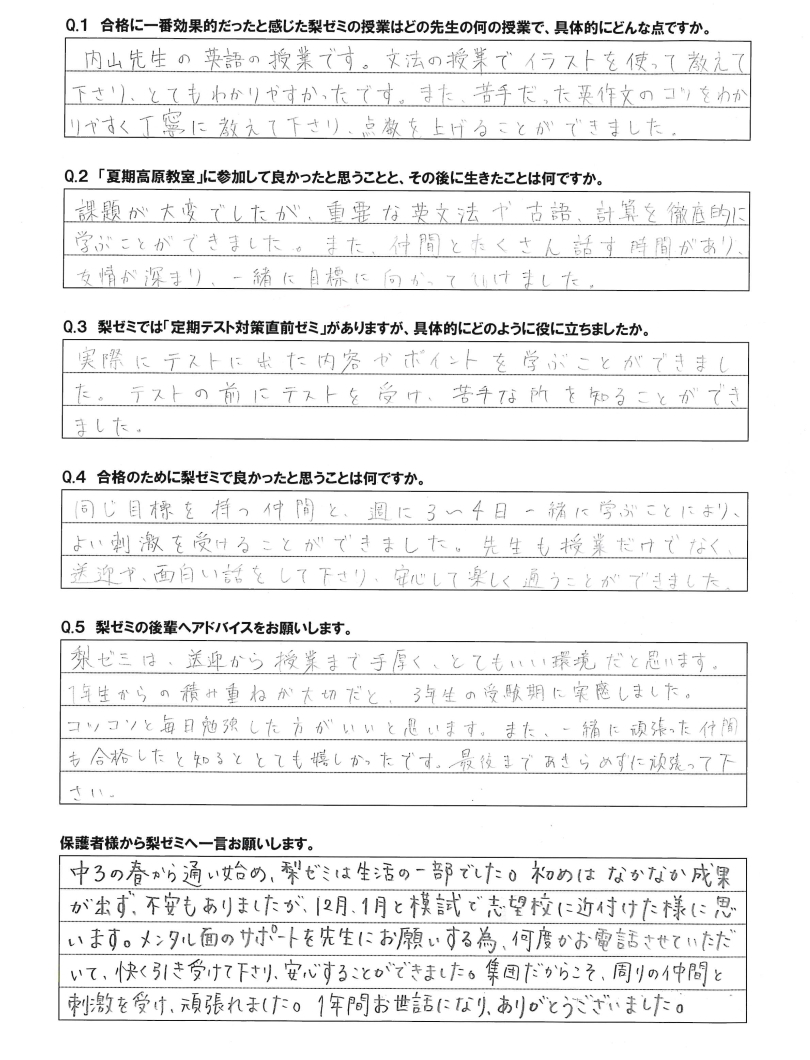 Q.1 合格に一番効果的だったと感じた梨ゼミの授業はどの先生の何の授業で、具体的にどんな点ですか。
内山先生の英語の授業です。文法の授業でイラストを使って教えて
下さり、とてもわかりやすかったです。また、苦手だった英作文のコツをわか
りやすく丁寧に教えて下さり、点数を上げることができました。
Q.2 「夏期高原教室」に参加して良かったと思うことと、その後に生きたことは何ですか。
課題が大変でしたが、重要な英文法や古語、計算を徹底的に
学ぶことができました。また、仲間とたくさん話す時間があり、
友情が深まり、一緒に目標に向かっていけました。
Q.3 梨ゼミでは「定期テスト対策直前ゼミ」がありますが、具体的にどのように役に立ちましたか。
実際にテストに出た内容やポイントを学ぶことができまし
た。テストの前にテストを受け、苦手な所を知ることができ
ました。
Q.4 合格のために梨ゼミで良かったと思うことは何ですか。
同じ目標を持つ仲間と、週に3〜4日一緒に学ぶことにより、
よい刺激を受けることができました。先生も授業だけでなく、
送迎や、面白い話をして下さり、安心して楽しく通うことができました。
Q.5 梨ゼミの後輩へアドバイスをお願いします。
梨ゼミは、送迎から授業まで手厚く、とてもいい環境だと思います。
1年生からの積み重ねが大切だと、3年生の受験期に実感しました。
コツコツと毎日勉強した方がいいと思います。また、一緒に頑張った仲間
も合格したと知るととても嬉しかったです。最後まであきらめずに頑張って下
さい。
保護者様から梨ゼミへ一言お願いします。
中3の春から通い始め、梨ゼミは生活の一部でした。初めはなかなか成果
が出ず、不安もありましたが、12月、1月と模試で志望校に近付けた様に思
います。メンタル面のサポートを先生にお願いする為、何度かお電話させていただ
いて、快く引き受けて下さり、安心することができました。集団だからこそ、周りの仲間と
刺激を受け、頑張れました。1年間お世話になり、ありがとうございました。